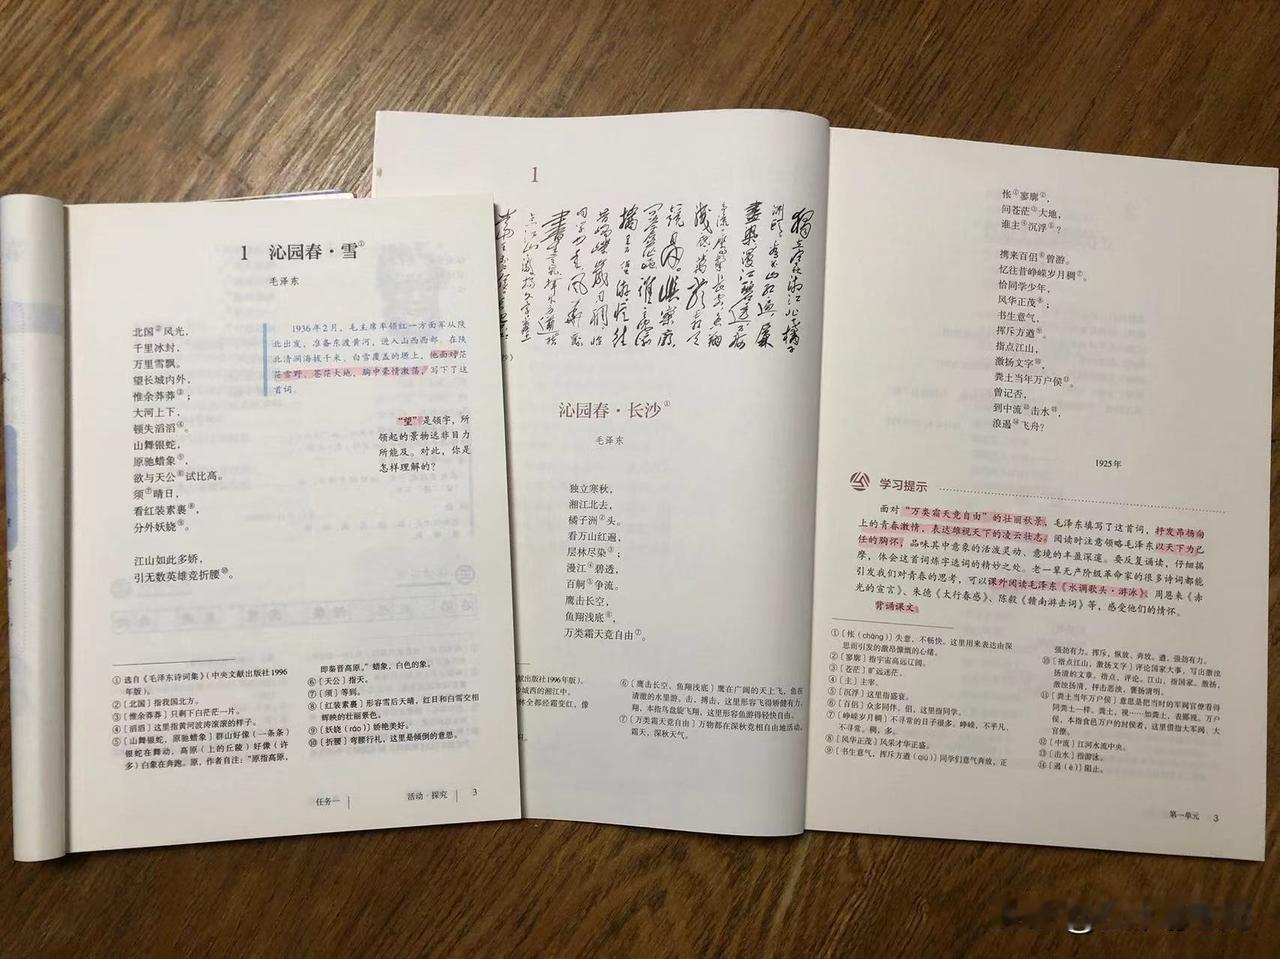 1 沁园春·雪①
毛泽东
北国②风光，
千里冰封，
万里雪飘。
望长城内外，
惟余莽莽③；
大河上下，
顿失滔滔④。
山舞银蛇，
原驰蜡象⑤，
欲与天公⑥试比高。
须⑦晴日，
看红装素裹⑧，
分外妖娆⑨。
江山如此多娇，
引无数英雄竞折腰⑩。
1936年2月，毛主席率领红一方面军从陕
北出发，准备东渡黄河，进入山西西部。在陕
北清涧海拔千米、白雪覆盖的塬上，他面对茫
茫雪野、苍茫大地，胸中豪情激荡，写下了这
首词。
“望”是领字，所
领起的景物远非目力
所能及。对此，你是
怎样理解的？
① 选自《毛泽东诗词集》（中央文献出版社1996
年版）。
②〔北国〕指我国北方。
③〔惟余莽莽〕只剩下白茫茫一片。
④〔滔滔〕这里指黄河波涛滚滚的样子。
⑤〔山舞银蛇，原驰蜡象〕群山好像（一条条）
银蛇在舞动，高原（上的丘陵）好像（许
多）白象在奔跑。原，作者自注：“原指高原，
即秦晋高原。”蜡象，白色的象。
⑥〔天公〕指天。
⑦〔须〕等到。
⑧〔红装素裹〕形容雪后天晴，红日和白雪交相
辉映的壮丽景色。
⑨〔妖娆（ráo）〕娇艳美好。
⑩〔折腰〕弯腰行礼，这里是倾倒的意思。
任务一
活动·探究
3
1
沁园春·长沙①
毛泽东
独立寒秋，
湘江北去，
橘子洲②头。
看万山红遍，
层林尽染③；
漫江④碧透，
百舸⑤争流。
鹰击长空，
鱼翔浅底⑥，
万类霜天竞自由⑦。
献出版社1996年版）。
城西的湘江中。
林全都经霜变红，像
⑥〔鹰击长空，鱼翔浅底〕鹰在广阔的天上飞，鱼在
清澈的水里游。击，搏击，这里形容飞得矫健有力。
翔，本指鸟盘旋飞翔，这里形容鱼游得轻快自由。
⑦〔万类霜天竞自由〕万物都在深秋竞相自由地活动。
霜天，深秋天气。
怅①寥廓②，
问苍茫③大地，
谁主④沉浮⑤？
携来百侣⑥曾游。
忆往昔峥嵘岁月稠⑦。
恰同学少年，
风华正茂⑧；
书生意气，
挥斥方遒⑨。
指点江山，
激扬文字⑩，
粪土当年万户侯⑪。
曾记否，
到中流⑫击水⑬，
浪遏⑭飞舟？
1925年
学习提示
面对“万类霜天竞自由”的壮丽秋景，毛泽东填写了这首词，抒发昂扬向
上的青春激情，表达雄视天下的凌云壮志。阅读时注意领略毛泽东以天下为己
任的胸怀，品味其中意象的活泼灵动、意境的丰盈深邃。要反复诵读，仔细揣
摩，体会这首词炼字选词的精妙之处。老一辈无产阶级革命家的很多诗词都能
引发我们对青春的思考，可以课外阅读毛泽东《水调歌头·游泳》、周恩来《赤
光的宣言》、朱德《太行春感》、陈毅《赣南游击词》等，感受他们的情怀。
背诵课文。
①〔怅（chàng）〕失意，不畅快。这里用来表达由深
思而引发的激昂慷慨的心绪。
②〔寥廓〕指宇宙高远辽阔。
③〔苍茫〕旷远迷茫。
④〔主〕主宰。
⑤〔沉浮〕这里指盛衰。
⑥〔百侣〕众多同伴。侣，这里指同学。
⑦〔峥嵘岁月稠〕不寻常的日子很多。峥嵘，不平凡，
不寻常。稠，多。
⑧〔风华正茂〕风采才华正盛。
⑨〔书生意气，挥斥方遒（qiú）〕同学们意气奔放，正
强劲有力。挥斥，纵放、奔放。遒，强劲有力。
⑩〔指点江山，激扬文字〕评论国家大事，写出激浊
扬清的文章。指点，评论。江山，指国家。激扬，
激浊扬清，抨击恶浊，褒扬清明。
⑪〔粪土当年万户侯〕意思是把当时的军阀官僚看得
同粪土一样。粪土，视……如粪土，表鄙视。万户
侯，本指食邑万户的封侯者，这里借指大军阀、大
官僚。
⑫〔中流〕江河水流中央。
⑬〔击水〕指游泳。
⑭〔遏（è）〕阻止。
第一单元 3